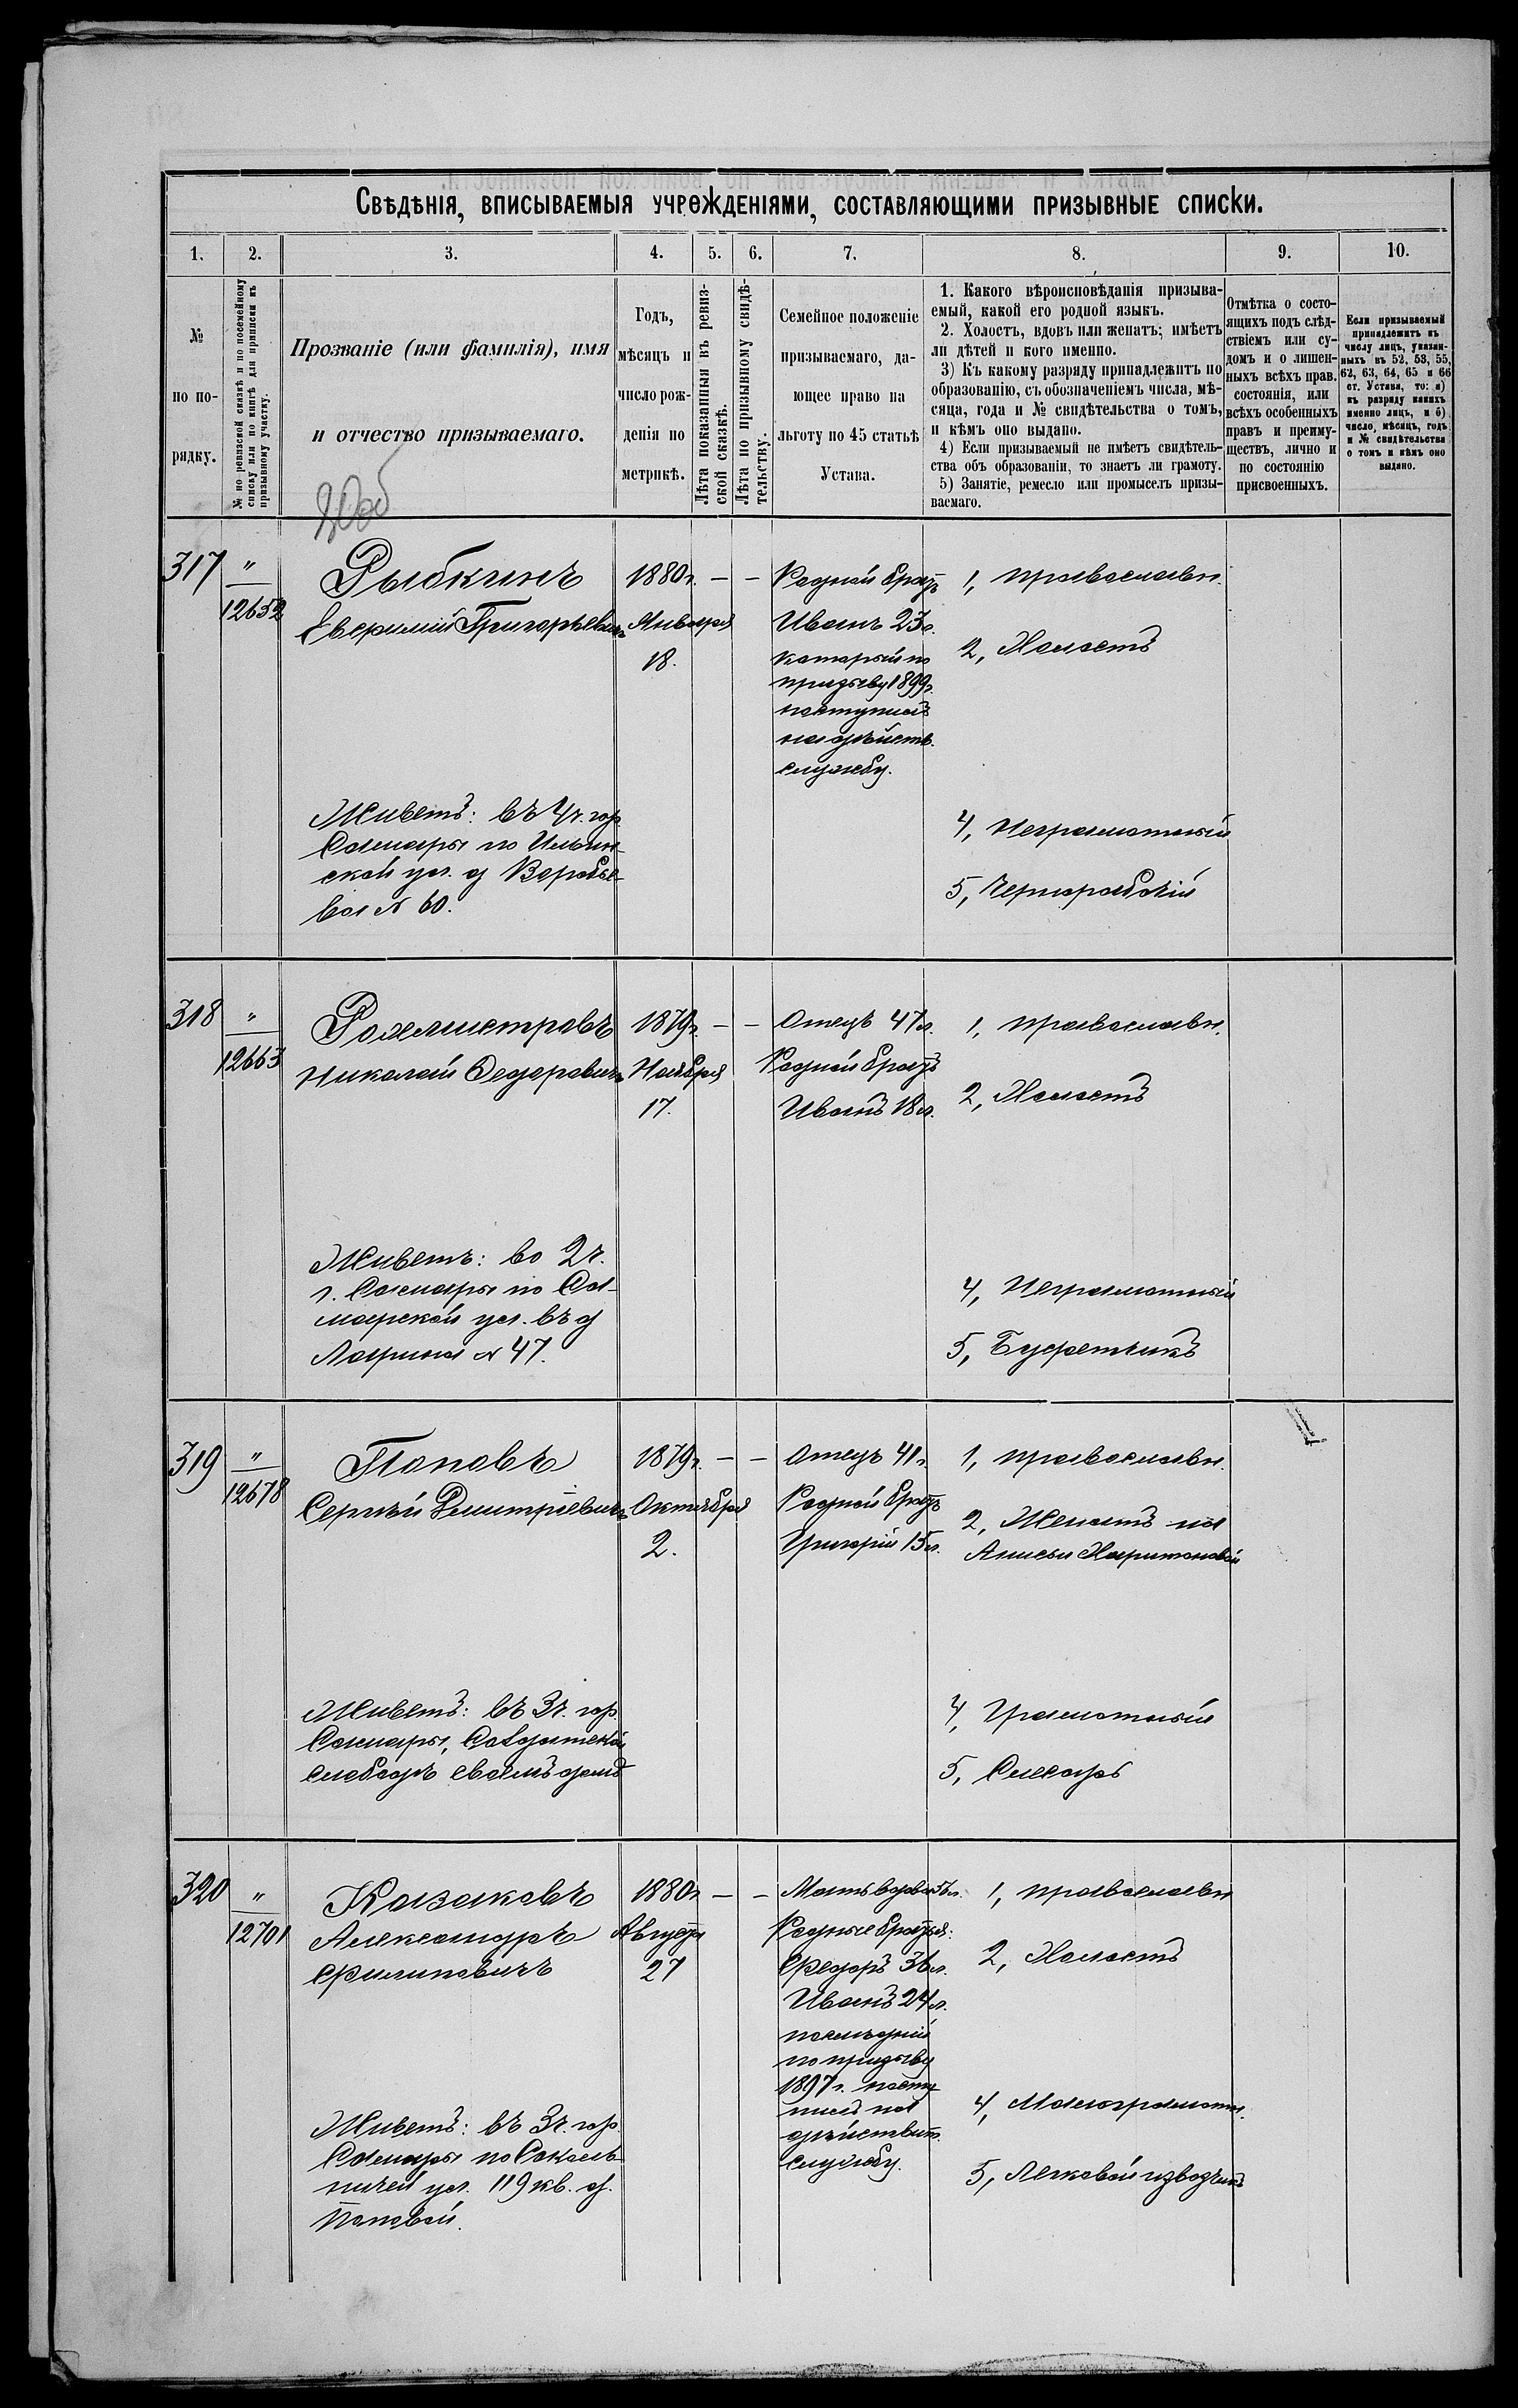 Свѣдѣнія, вписываемыя учрежденіями, составляющими призывные списки.
1. 2. 3. 4. 5. 6. 7. 8. 9. 10.
№
по по-
рядку.
№ по ревизской сказкѣ и по посемейному
списку или по книгѣ для приписки къ
призывному участку.
Прозваніе (или фамилія), имя
и отчество призываемаго.
Годъ,
мѣсяцъ и
число рож-
денія по
метрикѣ.
Лѣта показанныя въ ревиз-
ской сказкѣ.
Лѣта по призывному свидѣ-
тельству.
Семейное положеніе
призываемаго, да-
ющее право на
льготу по 45 статьѣ
Устава.
1. Какого вѣроисповѣданія призыва-
емый, какой его родной языкъ.
2. Холостъ, вдовъ или женатъ; имѣетъ
ли дѣтей и кого именно.
3) Къ какому разряду принадлежитъ по
образованію, съ обозначеніемъ числа, мѣ-
сяца, года и № свидѣтельства о томъ,
и кѣмъ оно выдано.
4) Если призываемый не имѣетъ свидѣтель-
ства объ образованіи, то знаетъ ли грамоту.
5) Занятіе, ремесло или промыселъ призы-
ваемаго.
Отмѣтка о состо-
ящихъ подъ слѣд-
ствіемъ или су-
домъ и о лишен-
ныхъ всѣхъ прав.
состоянія, или
всѣхъ особенныхъ
правъ и преиму-
ществъ, лично и
по состоянію
присвоенныхъ.
Если призываемый
принадлежитъ къ
числу лицъ, указан-
ныхъ въ 52, 53, 55,
62, 63, 64, 65 и 66
ст. Устава, то: а)
къ разряду какихъ
именно лицъ, и б)
число, мѣсяцъ, годъ
и № свидѣтельства
о томъ и кѣмъ оно
выдано.
317
"
12652
Рыбкинъ
Григорьевичъ
1880г.
Января
18.
— —
Родной братъ
Иванъ 23л.
который по
призыву 1899г.
поступилъ
на дѣйств.
службу.
1, православн.
2, Холостъ
4, Неграмотный
5, Чернорабочій
Живетъ: въ 4ч. гор.
Самары по Ильин-
ской ул. д Воробье-
ва № 60.
318
"
12663
Рахмистровъ
Николай Федоровичъ
1879г.
Ноября
17.
— —
Отецъ 47л.
Родной братъ
Иванъ 18л.
1, православн.
2, Холостъ
4, Неграмотный
5, Буфетчикъ
Живетъ: во 2ч.
г. Самары по Са-
марской ул. въ д
Ларина № 47.
319
"
12678
Поповъ
Сергѣй Дмитріевичъ
1879г.
Октября
2.
— —
Отецъ 41г.
Родной братъ
Григорій 15л.
1, православн.
2, Женатъ на
Анисьи Харитоновой
4, Грамотный
5, Слесарь
Живетъ: въ 3ч. гор.
Самары, Солдатской
слободѣ своемъ домѣ
320
"
12701
Казаковъ
Александръ
Филиповичъ
1880г
Августа
27
— —
Мать вдова 56л.
Родные братья:
Федоръ 36л.
Иванъ 24л.
послѣдній
по призыву
1897г. посту-
пилъ на
дѣйствит.
службу.
1, православн
2, Холостъ
4, Малограмотн.
5, Легковой извозчикъ
Живетъ: въ 3ч. гор.
Самары по Соколь-
ничей ул. 119 кв. д.
Поповой.